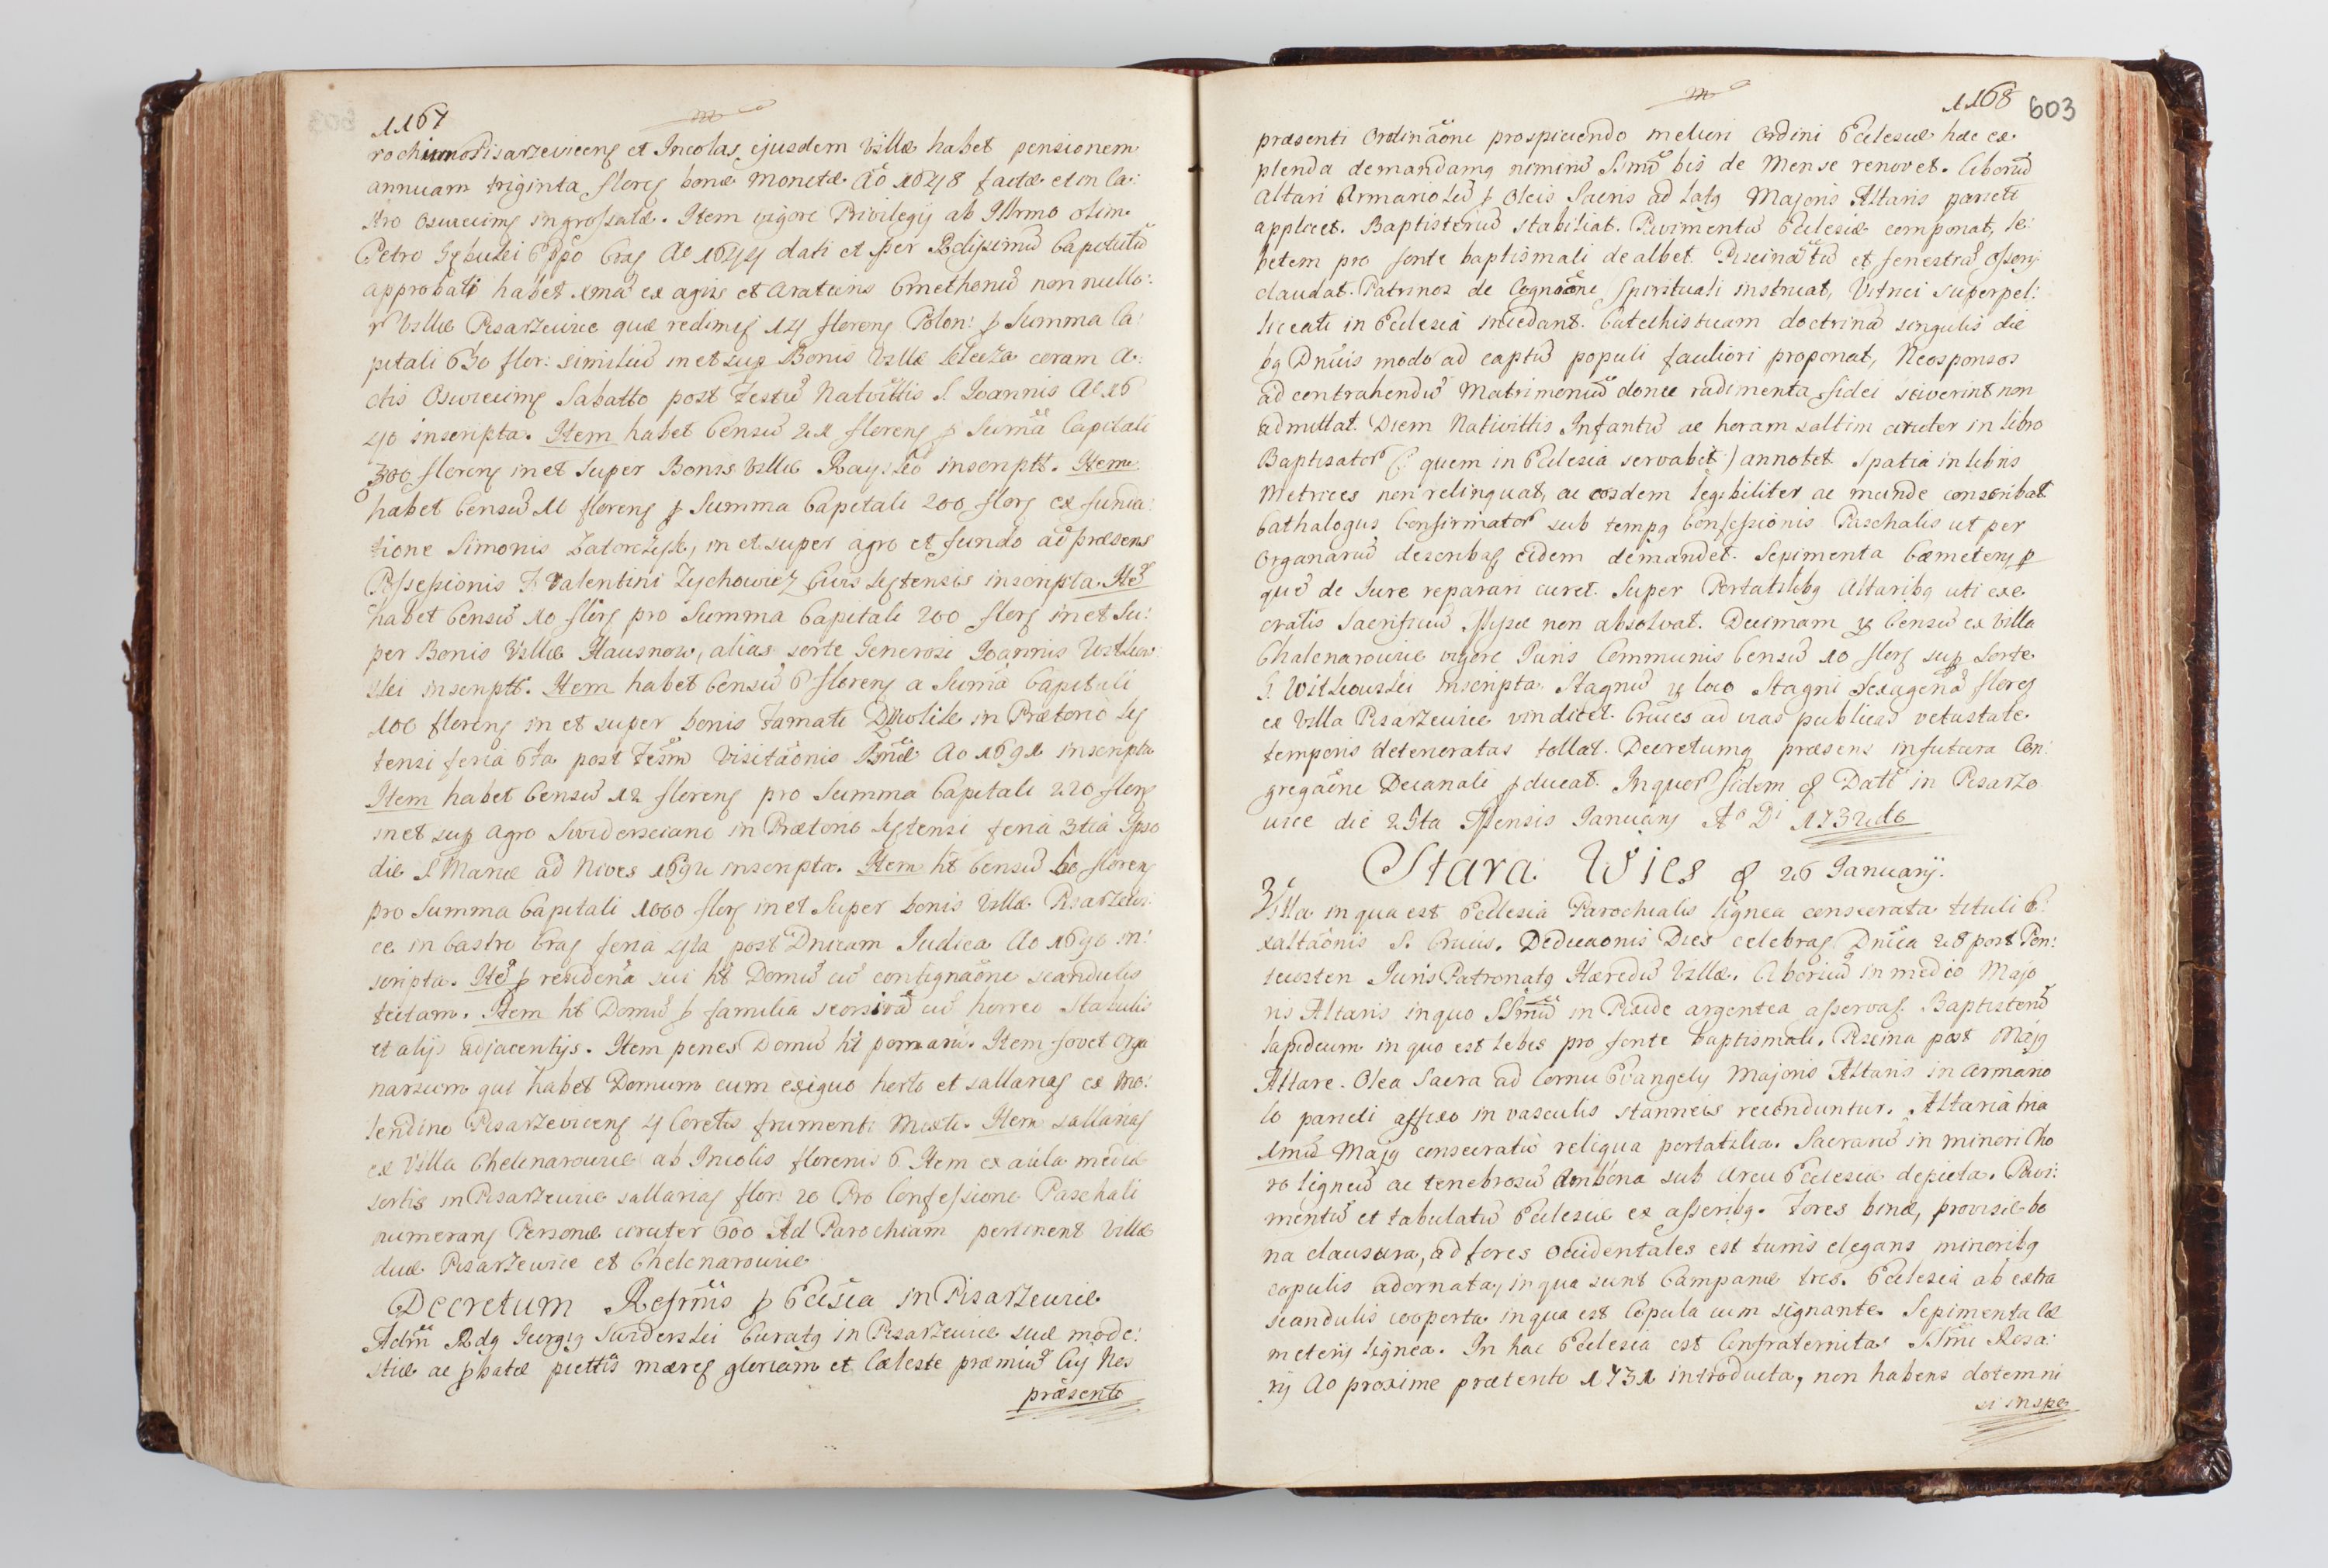 1167
rochum Pisarzevicens et Incolas ejusdem Villæ habet pensionem
annuam triginta florens bonæ Monetæ Ao 1648 factæ et in Ca:
stro Osviecims ingrossatæ. Item vigore Privilegij ab Illrmo olim
Petro Gębicki Eppo Crac Ao 1644 dati et per Rdissimū Capitulū
approbati habet Xmā ex agris et Araturis Cmethonū non nullo:
r Villæ Pisarzeuice quæ redimis 14 florens Polon: p Summa Ca:
pitali 630 flor: similiū in et sup Bonis Villæ coram A:
ctis Osviecims Sabatto post Festū Nativittis S. Joannis Ao 16
40 inscripta. Item habet Censū 21 florens p Sumā Capitali
300 florens in et super Bonis Villæ Raysko inscriptt. Item
habet Censū 10 florens p Summa Capitali 200 flors ex funda:
tione Simonis in et super agro et fundo ad præsens
Possessionis F Valentini Zychowicz Civis inscripta. Itē
habet Censū 10 flors pro Summa Capitali 200 flors in et Su:
per Bonis Villæ Hausnow, alias sorte Generosi Joannis
inscriptt. Item habet Censū 6 florens a Sumā Capitali
100 florens in et super bonis Famati in Prætorio
tensi feria 6ta post Fesm Visitāonis Bmæ Ao 1691 inscripta
Item habet Censū 12 florens pro Summa Capitali 220 flors
in et sup agro in Prætorio feria 3tia Ipso
die S Mariæ ad Nives 1692 inscripta. Item ht Censū 60 florens
pro Summa Capitali 1000 flors in et Super bonis Villæ Pisarzevi:
ce in Castro Crac feria 4ta post Dnicam Judica Ao in:
scripta. Itē p residenā sui ht Domū cū contignāone scandulis
tectam. Item ht Domū p familia seorsivā cū horreo Stabulis
et alijs adjacentijs. Item penes Domū ht pomariū. Item fovet Orga
narium qui habet Domum cum exiguo horto et sallarias ex Mo:
lendino Pisarzevicens 4 Coretos frumenti Mixti. Item sallarias
ex Villa Chelenarovice ab Incolis florenis 6 Item ex aula mediæ
sortis in Pisarzeuice sallarias flor: 20 Pro Confessione Paschali
numerans Personæ circiter 600 Ad Parochiam pertinent Villæ
duæ Pisarzeuice et Chelenarovice
Decretum Refrmis p Ecclsia in Pisarzeuice
Adm Rdg Georgig Swiderski Curatg in Pisarzeuice suæ mode:
stiæ ac pbatæ piettis mæres gloriam et cæleste præmiū Cuj Nos
præsenti
1168
603
præsenti Ordināone prospiciendo meliori Ordini Ecclesiæ hæc ex
plenda demandamg nimirū SSmū bis de Mense renovet. Ciboriū
Altari Armariolū p Oleis Sacris ad Latg Majoris Altaris parieti
applicet. Baptisteriū stabiliat. Pavimentū Ecclesiæ componat, le:
betem pro fonte baptismali dealbet. Piscinātū et fenestrā Ossorij
claudat. Patrinos de Cognāone spirituali instruat, Vitrici superpel:
liceati in Ecclesia incedant. Catechisticam doctrinā singulis die
bg Dnicis modo ad captū populi faciliori proponat, Neosponsos
ad contrahendū Matrimoniū donec rudimenta fidei sciverint non
admittat. Diem Nativittis Infantū ac horam saltim circiter in libro
Baptisator (: quem in Ecclesia servabit :) annotet. Spatia in libris
Metrices non relinquat, ac eosdem legibiliter ac munde conscribat
Cathalogus Confirmator sub tempg Confessionis Paschalis ut per
Organariū describas eidem demandet. Sepimenta Cæmeterij p
quē de Jure reparari curet. Super Portatilibg Altaribg uti exe
cratis Sacrificiū Missæ non absolvat. Decimam & Censū ex Villa
Chalenarovice vigore Juris Communis Censū 10 flors sup Sorte
G. Witkowski inscripta. Stagnū & loco Stagni sexagenā flores
ex Villa Pisarzeuice vindicet. Cruces ad vias publicas vetustate
temporis deterioratas tollat. Decretumg præsens in futura Con:
gregāone Decanali pducat. In quor fidem & Datt in Pisarzo
uice die 25ta Mensis Januarij Ao Di 1732do
Stara Wies & 26 Januarij.
Villa in qua est Ecclesia Parochialis lignea consecrata tituli E:
xaltāonis S. Crucis. Dedicaonis Dies celebras Dnica 28 post Pen:
tecosten Juris Patronatg Hæredū Villæ. Ciboriū in medio Majo
ris Altaris in quo SSmū in Pixide argentea asservas. Baptisteriū
lapideum in quo est lebes pro fonte baptismali. Piscina post Majg
Altare. Olea Sacra ad Cornu Evangelij Majoris Altaris in armario
lo parieti affixo in vasculis stanneis reconduntur. Altaria tria
1mū Majg consecratū reliqua portatilia. Sacrariū in minori Cho
ro ligneū ac tenebrosū Ambona sub Arcu Ecclesiæ depicta. Pavi:
mentū et tabulatū Ecclesiæ ex asseribg. Fores binæ, provisæ bo
na clausura, ad fores Occidentales est turris elegans minoribg
copulis adornata, in qua sunt Campanæ tres. Ecclesia ab extra
scandulis cooperta in qua est Copula cum signante. Sepimenta Cæ
meterij lignea. In hac Ecclesia est Confraternitas SSmi Rosa:
rij Ao proxime præterito 1731 introducta, non habens dotem ni
si in spe